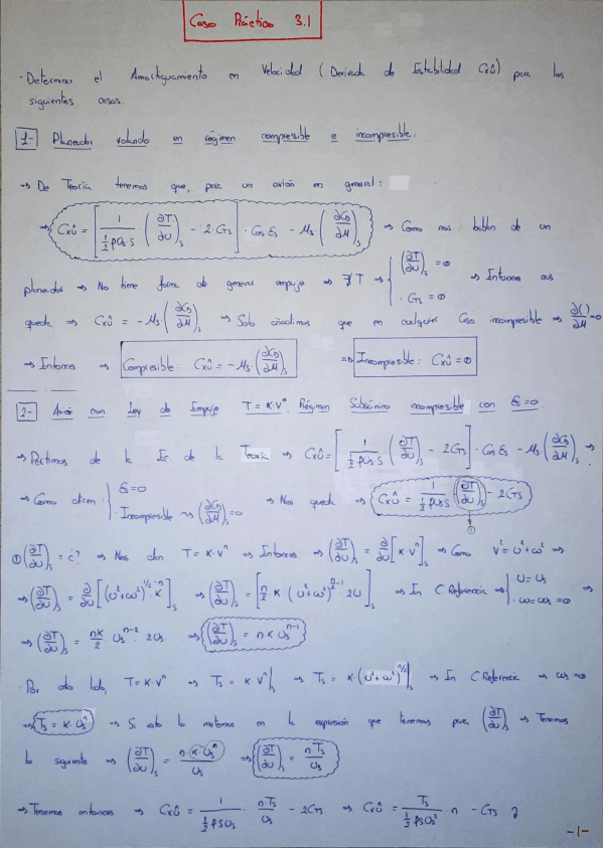 Caso Práctico 3.1
- Determinar el Amortiguamiento en Velocidad (Derivada de Estabilidad Cxû) para los
siguientes casos:
1- Planeador volando en régimen compresible e incompresible.
→ De Teoría tenemos que, para un avión en general:
⇒ Cxû = [1/(½ρUs·S) · (∂T/∂U)s - 2·CTs] · Cos Es - Ms (∂CD/∂M)s → Como nos hablan de un
planeador → No tiene forma de generar empuje ⇒ ∄ T ⇒ { (∂T/∂U)s = 0 · CTs = 0 ⇒ Entonces nos
queda ⇒ Cxû = -Ms (∂CD/∂M)s → Solo añadimos que en cualquier Caso incompresible ⇒ ∂( )/∂M = 0
→ Entonces → Compresible: Cxû = -Ms·(∂CD/∂M)s ⇒ Incompresible: Cxû = 0
2- Avión con Ley de Empuje T = K·Vⁿ. Régimen Subsónico incompresible con Es = 0
→ Partimos de la Ec de la Teoría → Cxû = [1/(½ρUs S) · (∂T/∂U)s - 2CTs] · Cos Es - Ms (∂CD/∂M)s →
→ Como dicen: { Es = 0 · Incompresible ⇒ (∂CD/∂M)s = 0 → Nos queda → Cxû = 1/(½ρUs S) · (∂T/∂U)s - 2CTs
①
① (∂T/∂U)s = ¿? → Nos dan T = K·Vⁿ → Entonces → (∂T/∂U)s = ∂/∂U [K·Vⁿ]s → Como V² = U² + ω² ⇒
→ (∂T/∂U)s = ∂/∂U [(U² + ω²)^(1/2·n) · K]s → (∂T/∂U)s = [n/2 K·(U² + ω²)^(n/2-1) · 2U]s → En C. Referencia → { · U = Us · ω = ωs = 0 ⇒
→ (∂T/∂U)s = nK/2 · Us^(n-2) · 2Us → (∂T/∂U)s = n·K Us^(n-1)
· Por otro lado, T = K·Vⁿ → Ts = K·Vⁿ|s → Ts = K (U² + ω²)^(n/2)|s → En C Referencia → ωs = 0
→ Ts = K Usⁿ → Si esto lo metemos en la expresión que tenemos para (∂T/∂U)s → Tenemos
lo siguiente → (∂T/∂U)s = n·K·Usⁿ/Us → (∂T/∂U)s = n Ts/Us
→ Tenemos entonces → Cxû = 1/(½ρSUs) · nTs/Us - 2CTs → Cxû = Ts/(½ρSUs²) · n - CTs 2
-1-